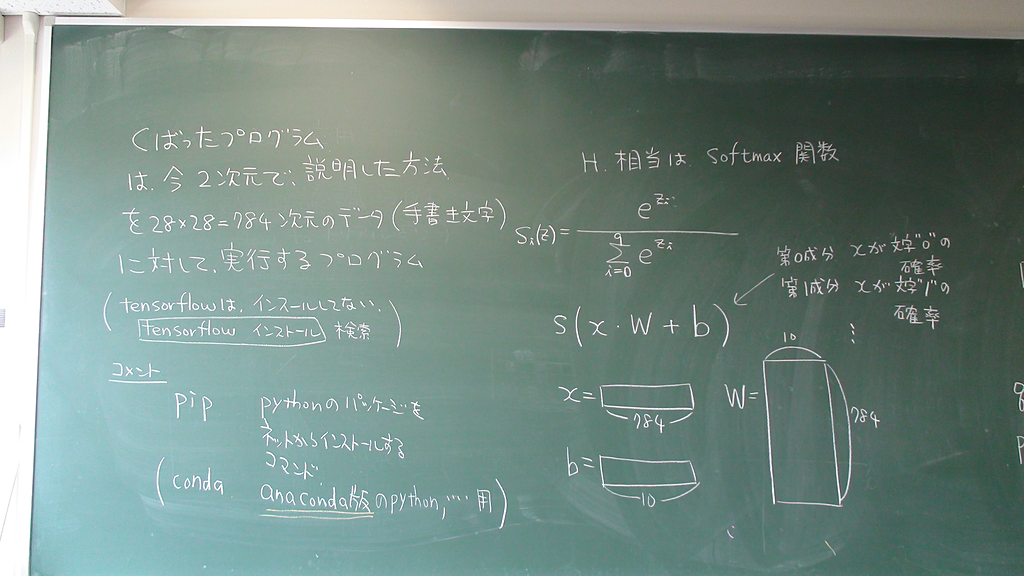 くばったプログラム
は、今 2次元で、説明した方法
を28×28=784次元のデータ(手書き文字)
に対して、実行するプログラム
(tensorflowは、インストールしてない。
tensorflow インストール 検索)
コメント
pip pythonのパッケージを
ネットからインストールする
コマンド
(conda anaconda版のpython, … 用)
H. 相当は、Softmax 関数
Si(z) = e^zi / Σ i=0 9 e^zi
第0成分 xが文字"0"の
確率
第1成分 xが文字"1"の
確率
⋮
S(x・W+b)
x= 784
b= 10
W= 10 784